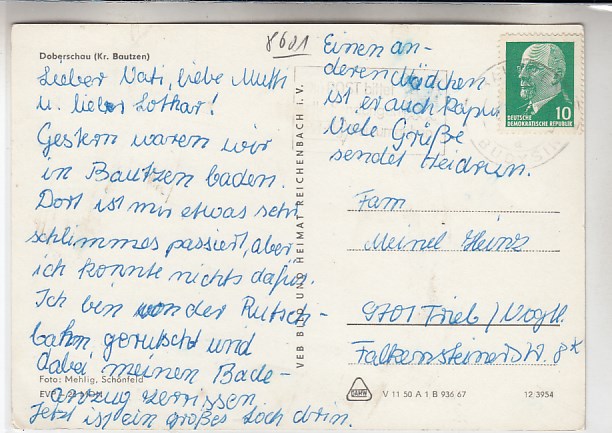 Doberschau (Kr. Bautzen)
8601
Lieber Vati, liebe Mutti
u. lieber Lothar!
Gestern waren wir
in Bautzen baden.
Dort ist mir etwas sehr
schlimmes passiert, aber
ich konnte nichts dafür.
Ich bin von der Rutsch-
bahn gerutscht und
dabei meinen Bade-
anzug zerrissen.
Jetzt ist ein großes Loch drin.
Einen an-
deren Mädchen
ist er auch kaput
Viele Grüße
sendet Heidrun.
DEUTSCHE
DEMOKRATISCHE REPUBLIK
10
Fam
Meinel Heinz
9701 Trieb / Vogtl.
Falkensteiner Str. 8
VEB BILD UND HEIMAT REICHENBACH I. V.
Foto: Mehlig, Schönfeld
EVP
V 11 50 A 1 B 936 67
12/3954